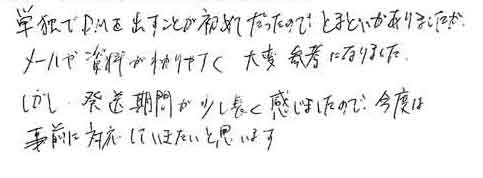 単独でDMを出すことが初めてだったので、とまどいがありましたが、
メールや資料がわかりやすく 大変 参考になりました。
しかし、発送期間が少し長く感じましたので、今度は
事前に対応していきたいと思います